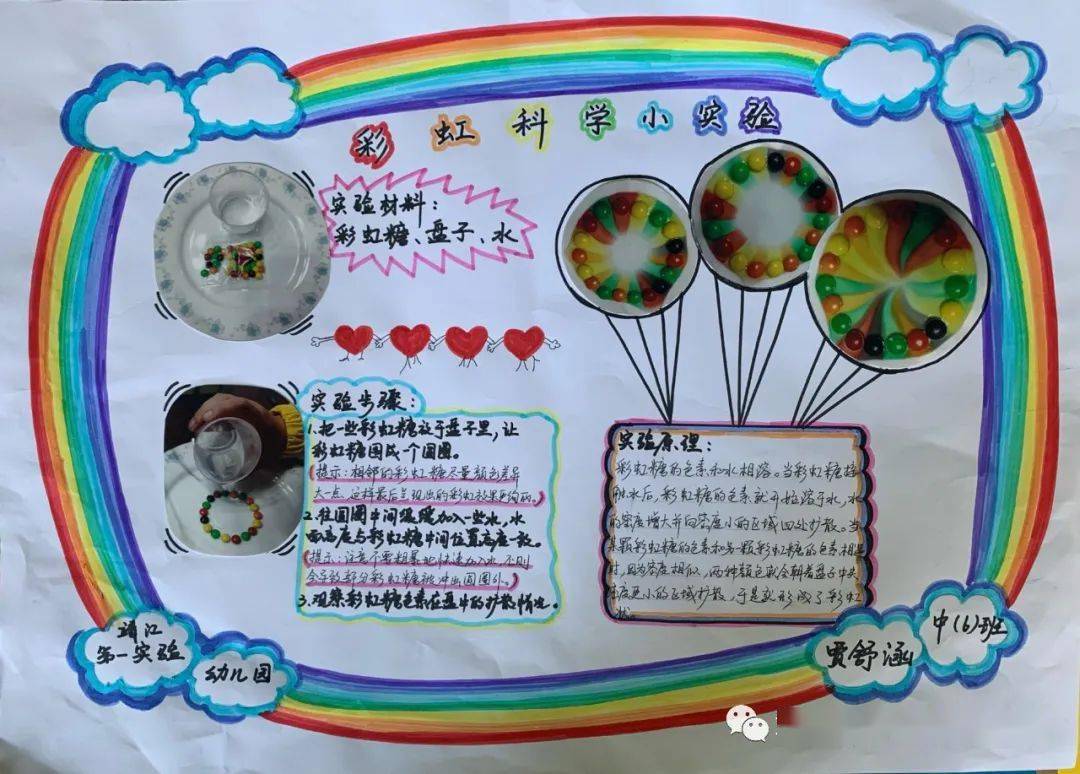 彩虹科学小实验
实验材料：
彩虹糖、盘子、水
实验步骤：
1、把一些彩虹糖放于盘子里，让
彩虹糖围成个圆圈。
(提示：相邻的彩虹糖尽量颜色差异
大一点，这样最后呈现出的彩虹效果更绚丽。)
2、往圆圈中间缓缓加入一些水，水
面高度与彩虹糖中间位置高度一致。
(提示：注意不要粗暴地快速加入水，不则
会导致部分彩虹糖被冲出圆圈外。)
3、观察彩虹糖色素在盘中的扩散情况。
实验原理：
彩虹糖的色素和水相溶。当彩虹糖接
触水后，彩虹糖的色素就开始溶于水，水
的密度增大并向密度小的区域四处扩散。当
某颗彩虹糖的色素和另一颗彩虹糖的色素相遇
时，因为密度相似，两种颜色就会朝着盘子中央
密度更小的区域扩散，于是就形成了彩虹
状。
靖江
第一实验
幼儿园
贾舒涵
中(6)班